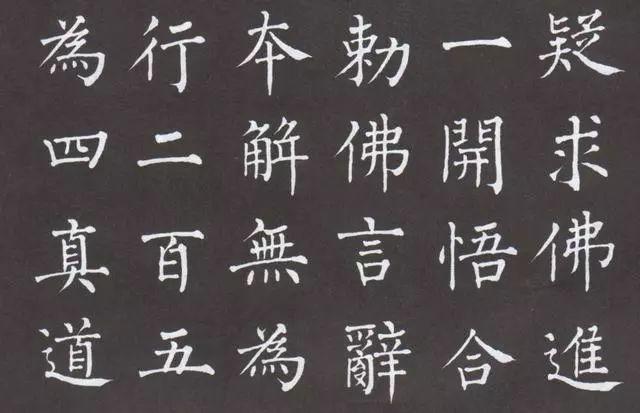 疑求佛進
一開悟合
勅佛言辭
本解無為
行二百五
為四真道